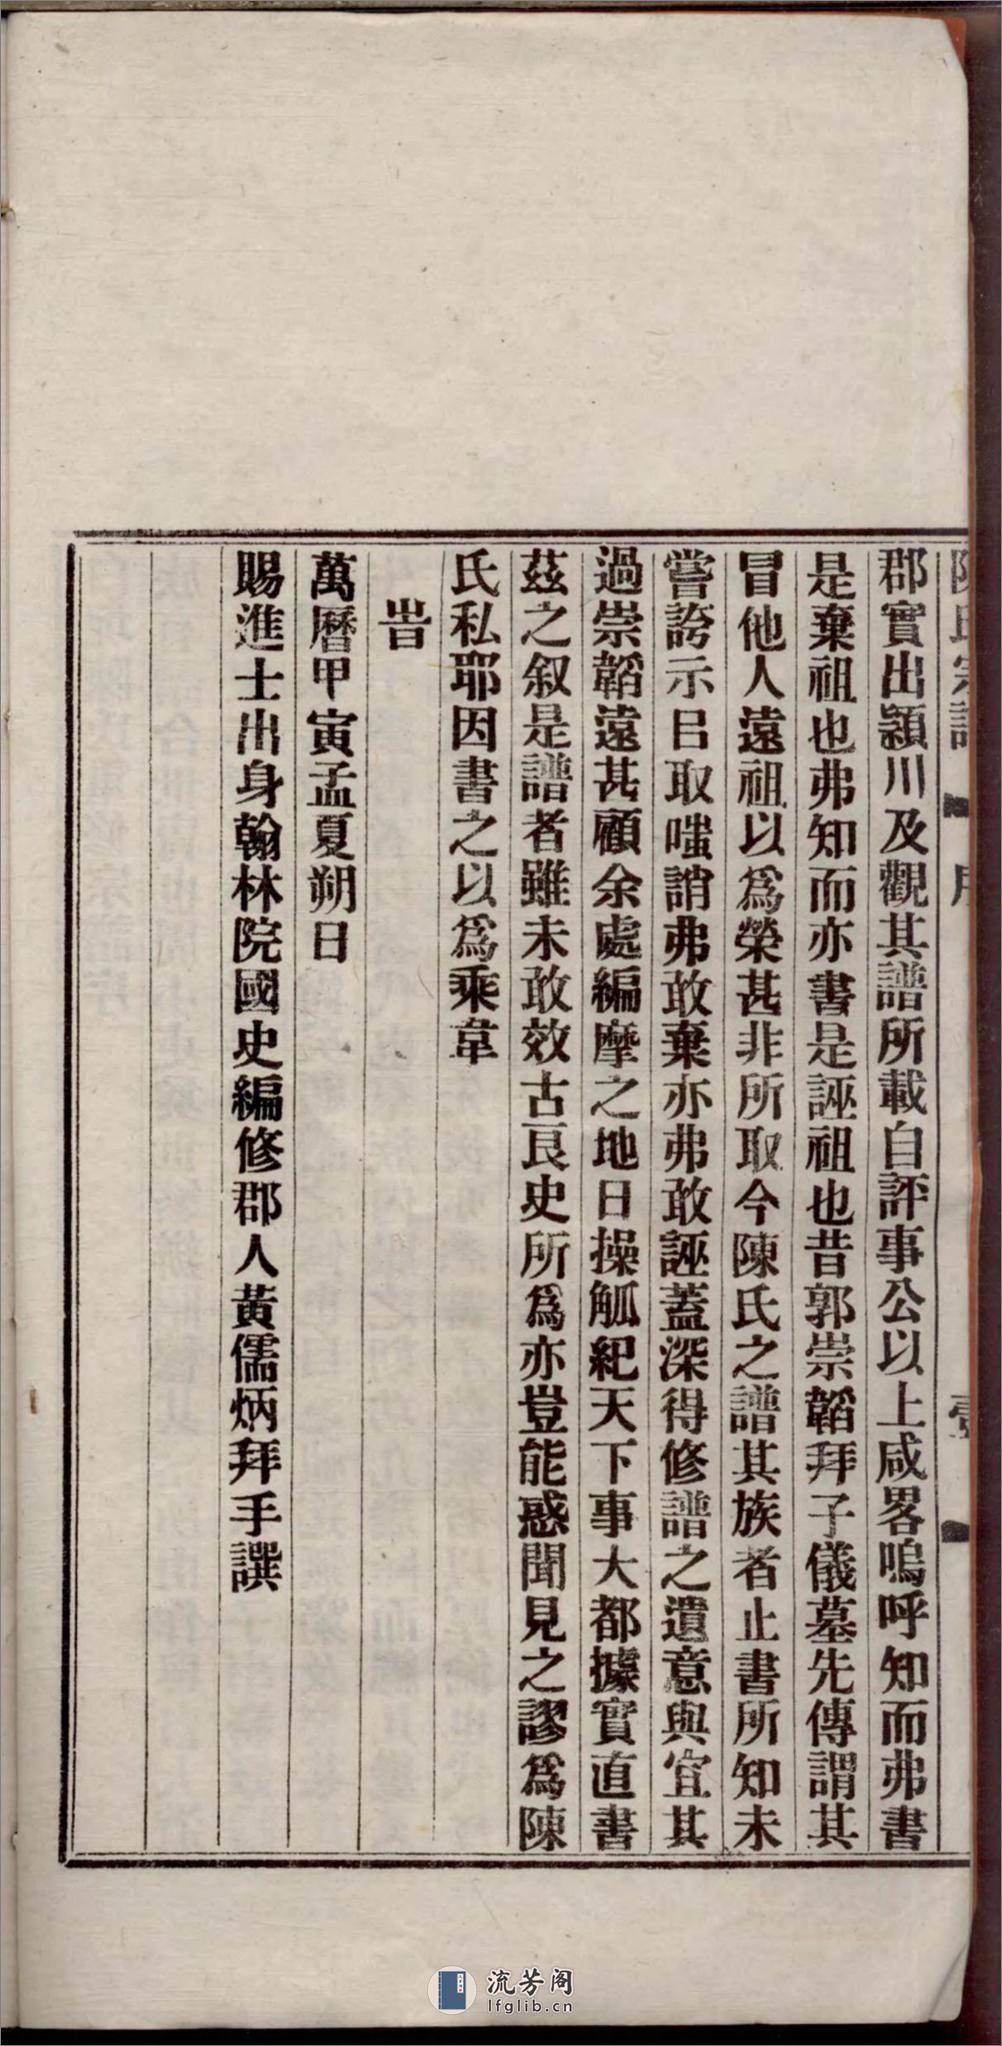 陳氏宗譜 序 壹
郡實出潁川及觀其譜所載自評事公以上咸畧嗚呼知而弗書
是棄祖也弗知而亦書是誣祖也昔郭崇韜拜子儀墓先傳謂其
冒他人遠祖以爲榮甚非所取今陳氏之譜其族者止書所知未
嘗誇示㠯取嗤誚弗敢棄亦弗敢誣蓋深得修譜之遺意與宜其
過崇韜遠甚顧余處編摩之地日操觚紀天下事大都據實直書
茲之叙是譜者雖未敢效古良史所爲亦豈能惑聞見之謬爲陳
氏私耶因書之以爲乘韋
旹
萬曆甲寅孟夏朔日
賜進士出身翰林院國史編修郡人黃儒炳拜手譔
流芳阁
lfglib.cn